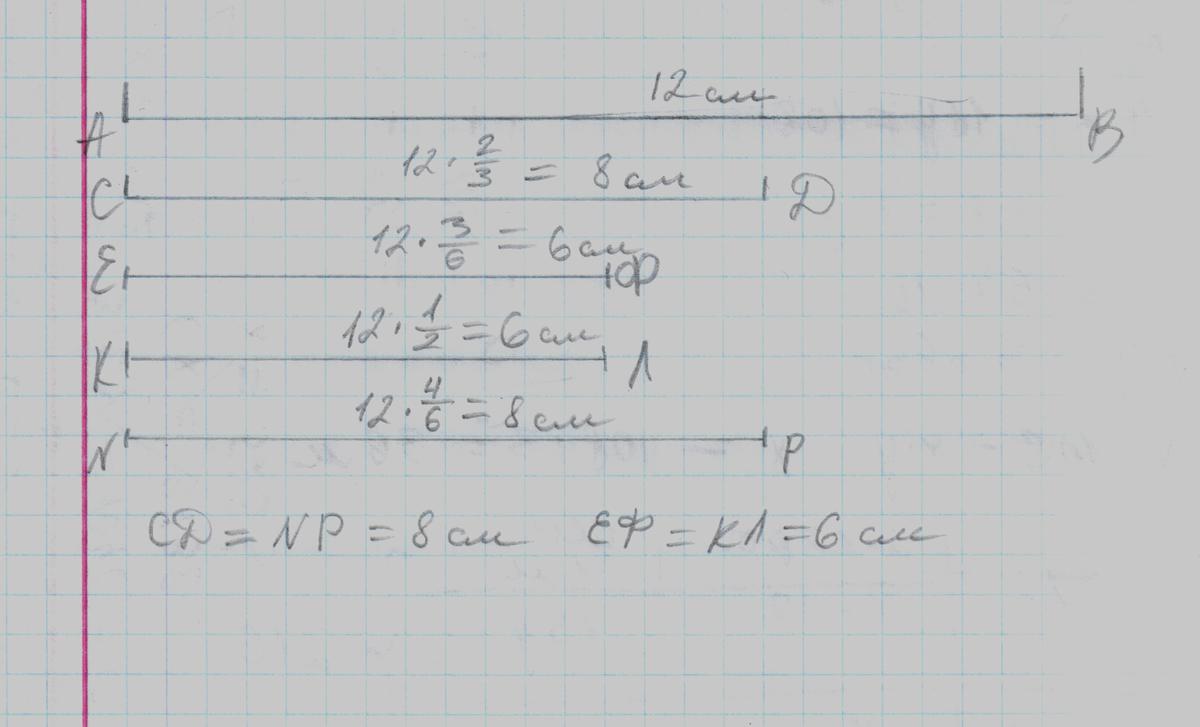 12 см
А В
12 · 2/3 = 8 см
С Д
12 · 3/6 = 6 см
Е Ф
12 · 1/2 = 6 см
К Л
12 · 4/6 = 8 см
N P
СД = NP = 8 см ЕФ = КЛ = 6 см